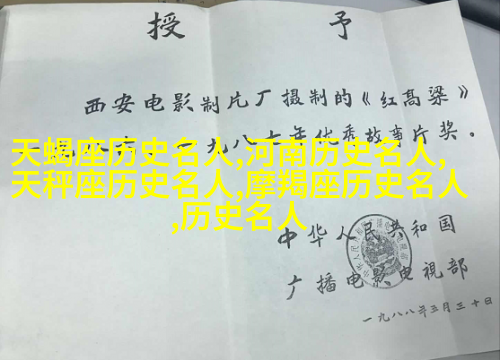 授予
西安电影制片厂摄制的《红高粱》
一九八七年优秀故事片奖。
天蝎座历史名人,河南历史名人,
天秤座历史名人,摩羯座历史名人
,历史名人
中华人民共和国
广播电影电视部
一九八八年三月三十日